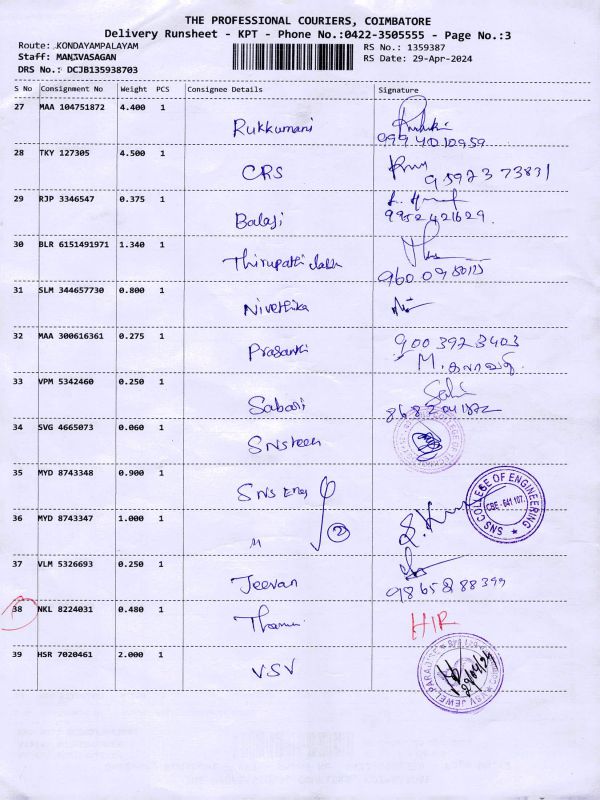 THE PROFESSIONAL COURIERS, COIMBATORE
Delivery Runsheet - KPT - Phone No.:0422-3505555 - Page No.:3
Route: KONDAYAMPALAYAM
RS No.: 1359387
Staff: MANIVASAGAN
RS Date: 29-Apr-2024
DRS No.: DCJB135938703
S No Consignment No Weight PCS Consignee Details Signature
27 MAA 104751872 4.400 1
Rukkumani
9994010959
28 TKY 127305 4.500 1
CRS
95923 73831
29 RJP 3346547 0.375 1
Balaji
9952421629.
30 BLR 6151491971 1.340 1
Thirupathi
31 SLM 344657730 0.800 1
Nivethika
32 MAA 300616361 0.275 1
Prasanth
9003923403
33 VPM 5342460 0.250 1
Sabari
34 SVG 4665073 0.060 1
SNS
35 MYD 8743348 0.900 1
SNS
SNS COLLEGE OF ENGINEERING
CBE - 641 107.
36 MYD 8743347 1.000 1
2
37 VLM 5326693 0.250 1
Jeevan
38 NKL 8224031 0.480 1
H/R
39 HSR 7020461 2.000 1
VSV
VSV JEWEL PARADISE
29/04/24